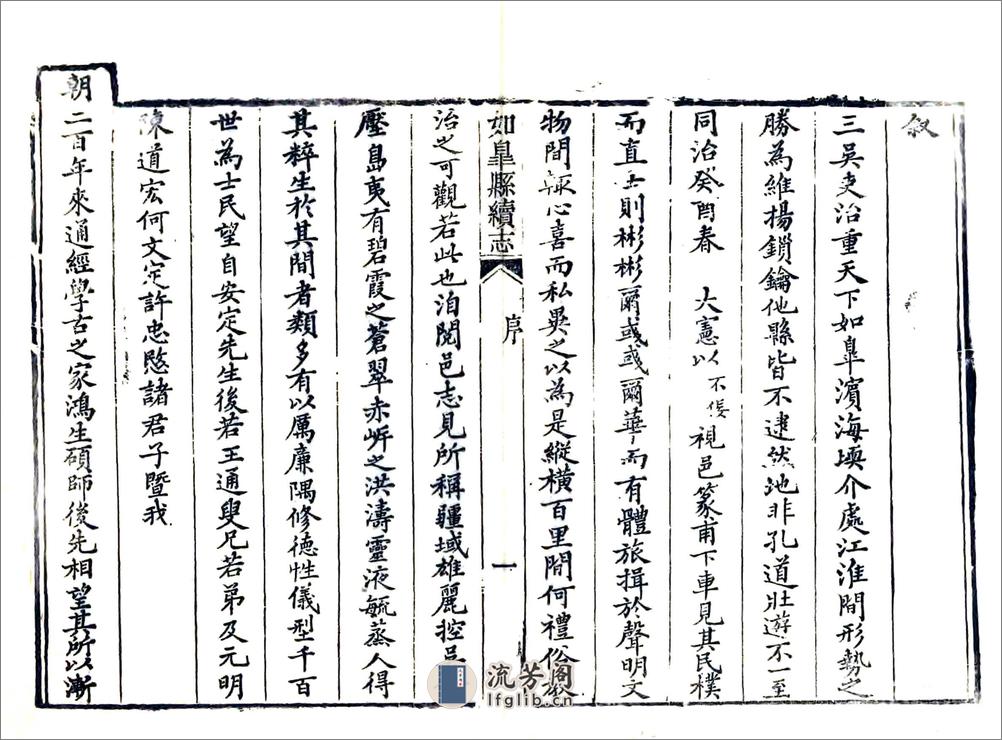 叙
三吳吏治重天下如臯濵海堧介處江淮間形勢之
勝為維揚鎖鑰他縣皆不逮然地非孔道壯遊不一至
同治癸酉春 大憲以不佞視邑篆甫下車見其民樸
而直士則彬彬爾彧彧爾華而有體旅揖於聲明文
物間輒心喜而私異之以為是縱横百里間何禮俗教
如臯縣續志 序 一
治之可觀若此也洎閱邑志見所稱疆域雄麗控吕
壓島夷有碧霞之蒼翠赤岍之洪濤靈液毓蒸人得
其粹生於其間者類多有以厲廉隅修德性儀型千百
世為士民望自安定先生後若王通叟兄若弟及元明
陳道宏何文定許忠愍諸君子暨我
朝二百年來通經學古之家鴻生碩師後先相望其所以漸
流芳阁
lfglib.cn